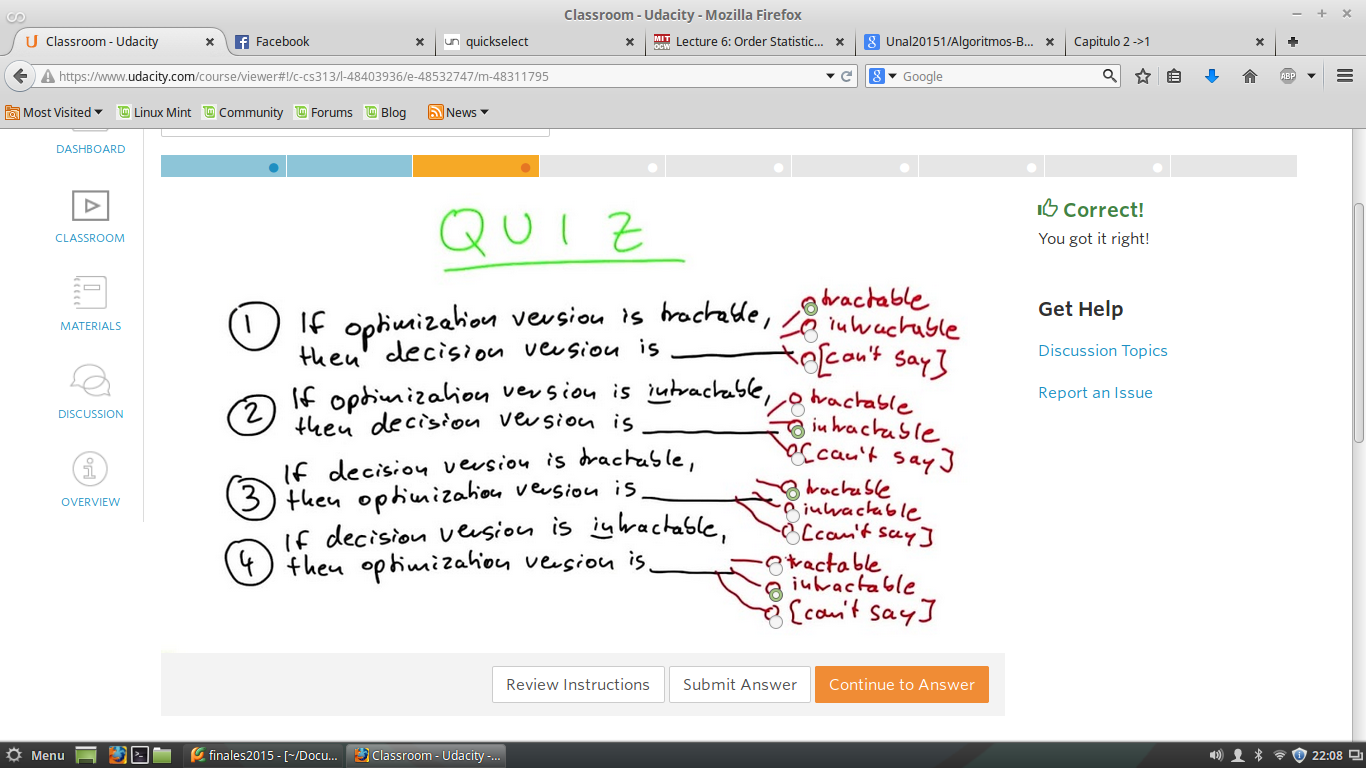 Classroom - Udacity - Mozilla Firefox
Classroom - Udacity
Facebook
quickselect
Lecture 6: Order Statistic...
Unal20151/Algoritmos-B...
Capitulo 2 ->1
https://www.udacity.com/course/viewer#!/c-cs313/l-48403936/e-48532747/m-48311795
Google
ABP
Most Visited
Linux Mint
Community
Forums
Blog
News
DASHBOARD
CLASSROOM
MATERIALS
DISCUSSION
OVERVIEW
QUIZ
1 If optimization version is tractable,
then decision version is ______
tractable
intractable
[can't say]
2 If optimization version is intractable,
then decision version is ______
tractable
intractable
[can't say]
3 If decision version is tractable,
then optimization version is ______
tractable
intractable
[can't say]
4 If decision version is intractable,
then optimization version is ______
tractable
intractable
[can't say]
Correct!
You got it right!
Get Help
Discussion Topics
Report an Issue
Review Instructions
Submit Answer
Continue to Answer
Menu
finales2015 - [~/Docu...
Classroom - Udacity -...
22:08